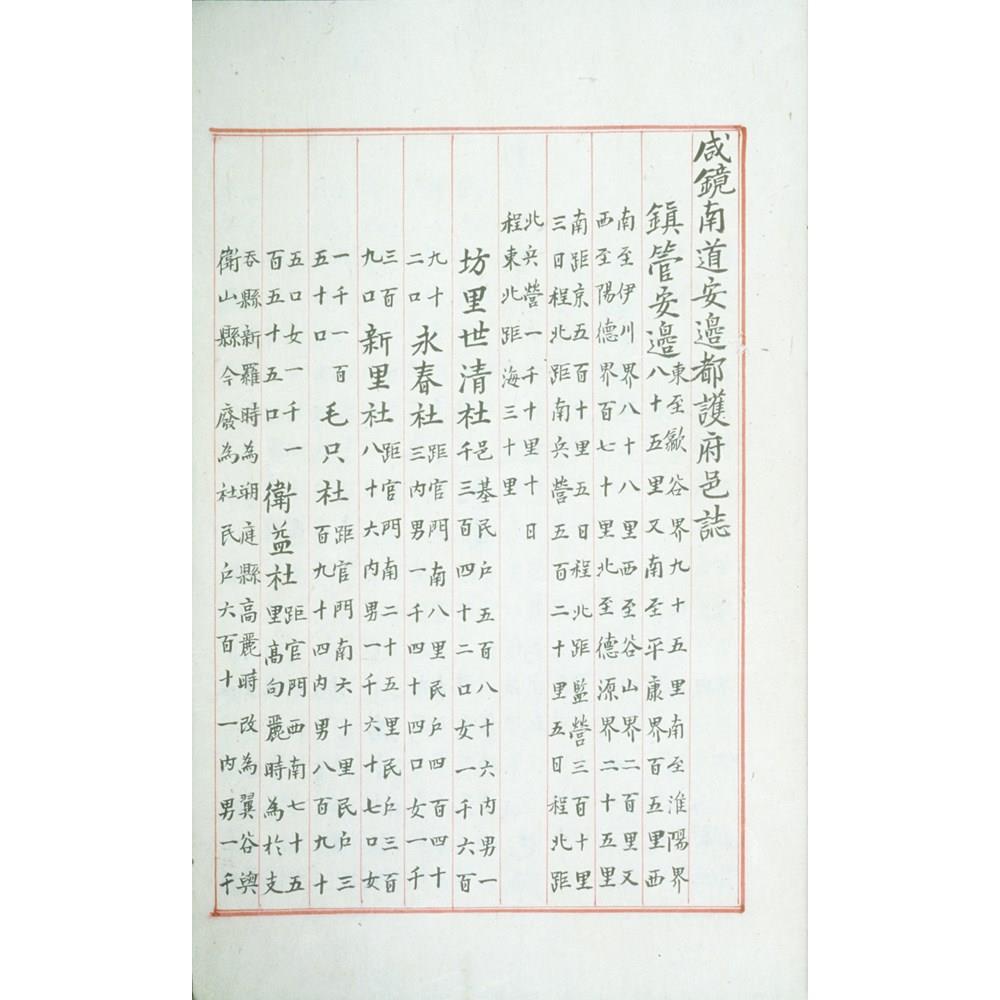 咸鏡南道安邊都護府邑誌
鎭管安邊東至歙谷界九十五里南至淮陽界
八十五里又南至平康界百五里西
南至伊川界八十八里西至谷山界二百里又
西至陽德界百七十里北至德源界二十五里
南距京五百十里五日程北距監營三百十里
三日程北距南兵營五百二十里五日程北距
北兵營一千十里十日
程東北距海三十里
坊里世清社邑基民戶五百八十六內男一
千三百四十二口女一千六百
九十
二口
永春社距官門南八里民戶四百四十
三內男一千四十四口女一千
三百
九口
新里社距官門南二十五里民戶三百
八十六內男一千六十七口女
一千一百
五十口
毛只社距官門南六十里民戶三
百九十四內男八百九十
五口女一千一
百五十五口
衛益社距官門西南七十五
里高句麗時為於支
呑縣新羅時為朔庭縣高麗時改為翼谷與
衛山縣今廢為社民戶六百十一內男一千